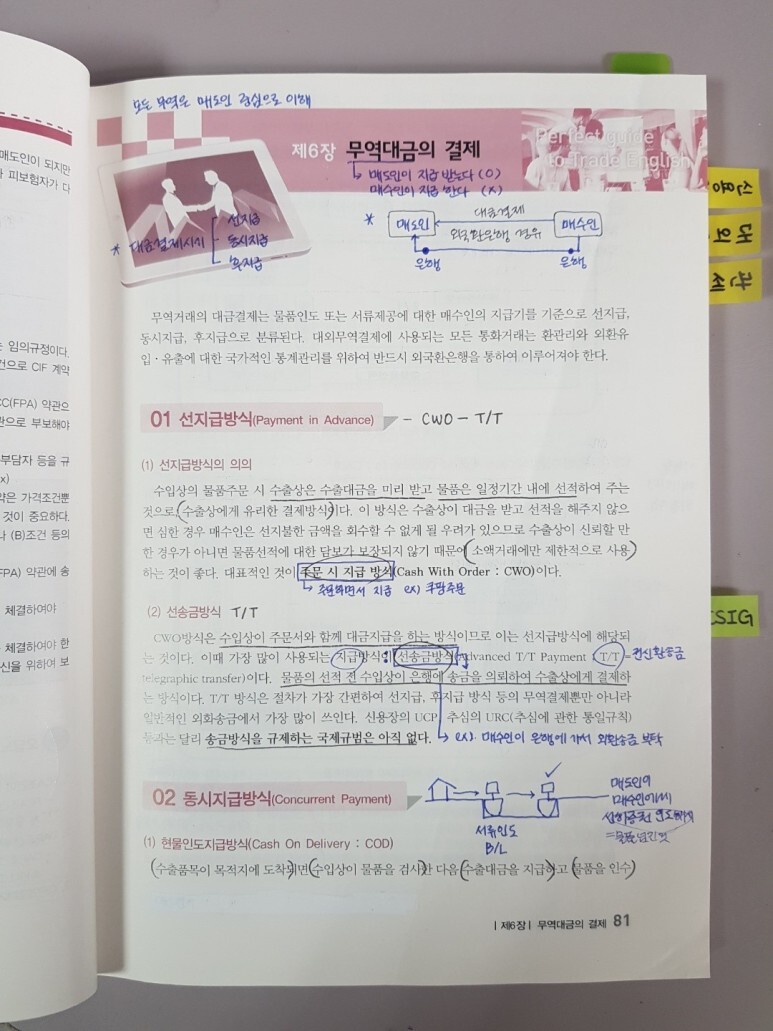 모든 무역은 매도인 중심으로 이해
매도인이 되지만
피보험자가 다
는 임의규정이다.
건으로 CIF 계약
CC(FPA) 약관으
관으로 부보해야
부담자 등을 규
약은 가격조건뿐
것이 중요하다.
(B)조건 등의
FPA) 약관에 송
체결하여야
체결하여야 한
신을 위하여 보
제6장 무역대금의 결제
Perfect guide
to Trade English
매도인이 지급 받는다 (O)
매수인이 지급 한다 (X)
* 대금결제시기
선지급
동시지급
후지급
* 매도인 대금결제 매수인
외국환은행 경유
은행 은행
무역거래의 대금결제는 물품인도 또는 서류제공에 대한 매수인의 지급기를 기준으로 선지급,
동시지급, 후지급으로 분류된다. 대외무역결제에 사용되는 모든 통화거래는 환관리와 외환유
입·유출에 대한 국가적인 통계관리를 위하여 반드시 외국환은행을 통하여 이루어져야 한다.
01 선지급방식(Payment in Advance) - CWO - T/T
(1) 선지급방식의 의의
수입상의 물품주문 시 수출상은 수출대금을 미리 받고 물품은 일정기간 내에 선적하여 주는
것으로 수출상에게 유리한 결제방식이다. 이 방식은 수출상이 대금을 받고 선적을 해주지 않으
면 심한 경우 매수인은 선지불한 금액을 회수할 수 없게 될 우려가 있으므로 수출상이 신뢰할 만
한 경우가 아니면 물품선적에 대한 담보가 보장되지 않기 때문에 소액거래에만 제한적으로 사용
하는 것이 좋다. 대표적인 것이 주문 시 지급 방식(Cash With Order : CWO)이다.
주문하면서 지급 ex) 쿠팡주문
(2) 선송금방식 T/T
CWO방식은 수입상이 주문서와 함께 대금지급을 하는 방식이므로 이는 선지급방식에 해당되
는 것이다. 이때 가장 많이 사용되는 지급방식이 선송금방식(Advanced T/T Payment : T/T = 전신환송금
telegraphic transfer)이다. 물품의 선적 전 수입상이 은행에 송금을 의뢰하여 수출상에게 결제하
는 방식이다. T/T 방식은 절차가 가장 간편하여 선지급, 후지급 방식 등의 무역결제뿐만 아니라
일반적인 외화송금에서 가장 많이 쓰인다. 신용장의 UCP, 추심의 URC(추심에 관한 통일규칙)
등과는 달리 송금방식을 규제하는 국제규범은 아직 없다.
ex) 매수인이 은행에 가서 외환송금 부탁
02 동시지급방식(Concurrent Payment)
서류인도
B/L
매도인이
매수인에게
=물품넘긴것
(1) 현물인도지급방식(Cash On Delivery : COD)
수출품목이 목적지에 도착되면 수입상이 물품을 검사한 다음 수출대금을 지급하고 물품을 인수
| 제6장 | 무역대금의 결제 81
신용
대외
관세
CSIG